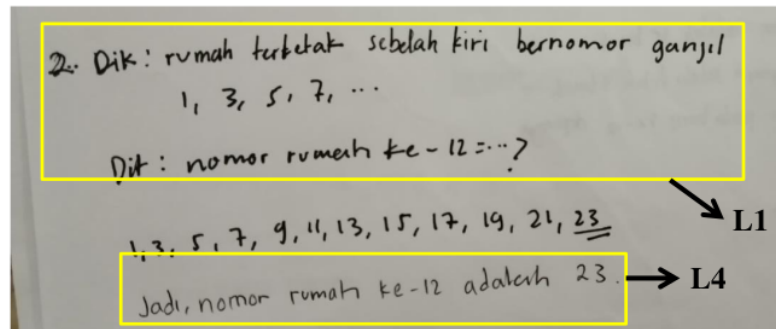 2. Dik : rumah terletak sebelah kiri bernomor ganjil
1, 3, 5, 7, ...
Dit : nomor rumah ke-12 = ...?
L1
1, 3, 5, 7, 9, 11, 13, 15, 17, 19, 21, 23
Jadi, nomor rumah ke-12 adalah 23.
L4